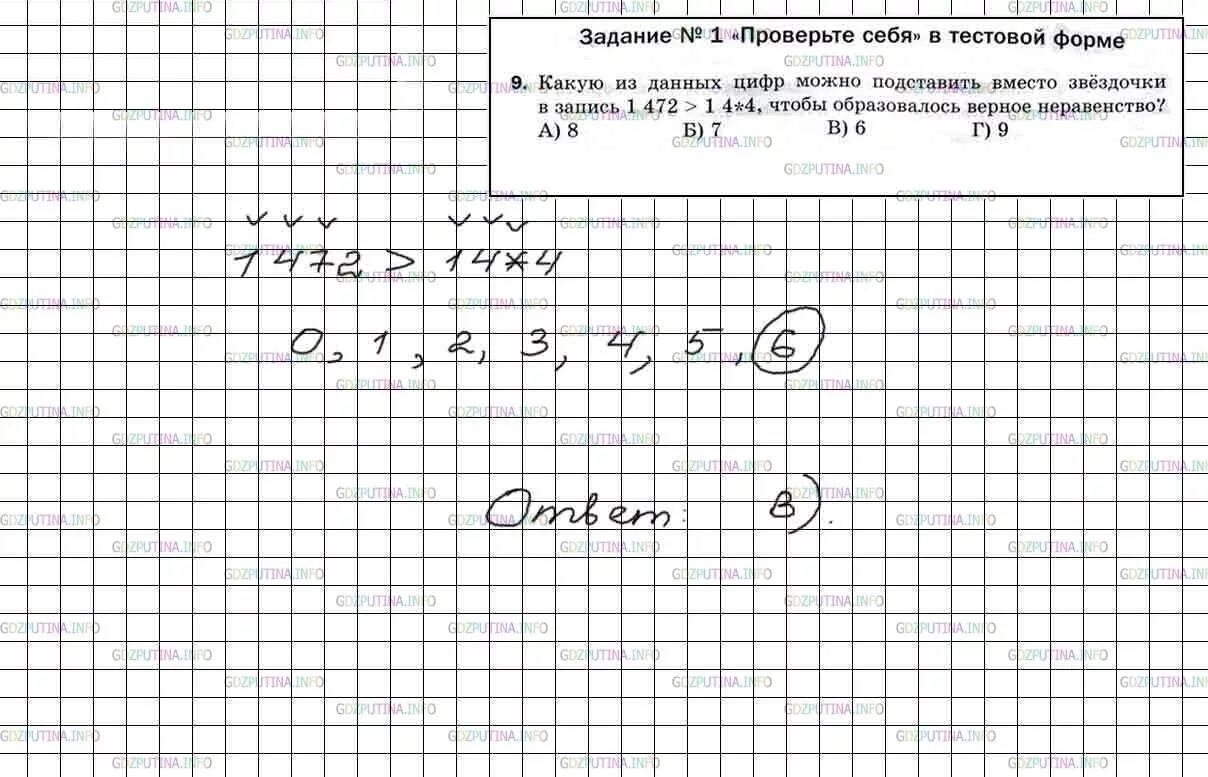 Задание № 1 «Проверьте себя» в тестовой форме
9. Какую из данных цифр можно подставить вместо звёздочки
в запись 1 472 > 1 4*4, чтобы образовалось верное неравенство?
А) 8 Б) 7 В) 6 Г) 9
1472 > 14*4
0, 1, 2, 3, 4, 5, 6
Ответ: В).
GDZPUTINA.INFO